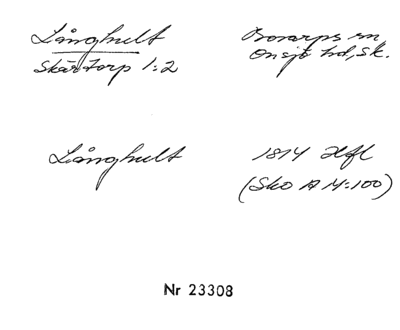 Långhult
Skärtorp 1:2
Bosarps sn,
Onsjö hd, Sk.
Långhult
1814 Hfl
(Sko A 14:100)
Nr 23308